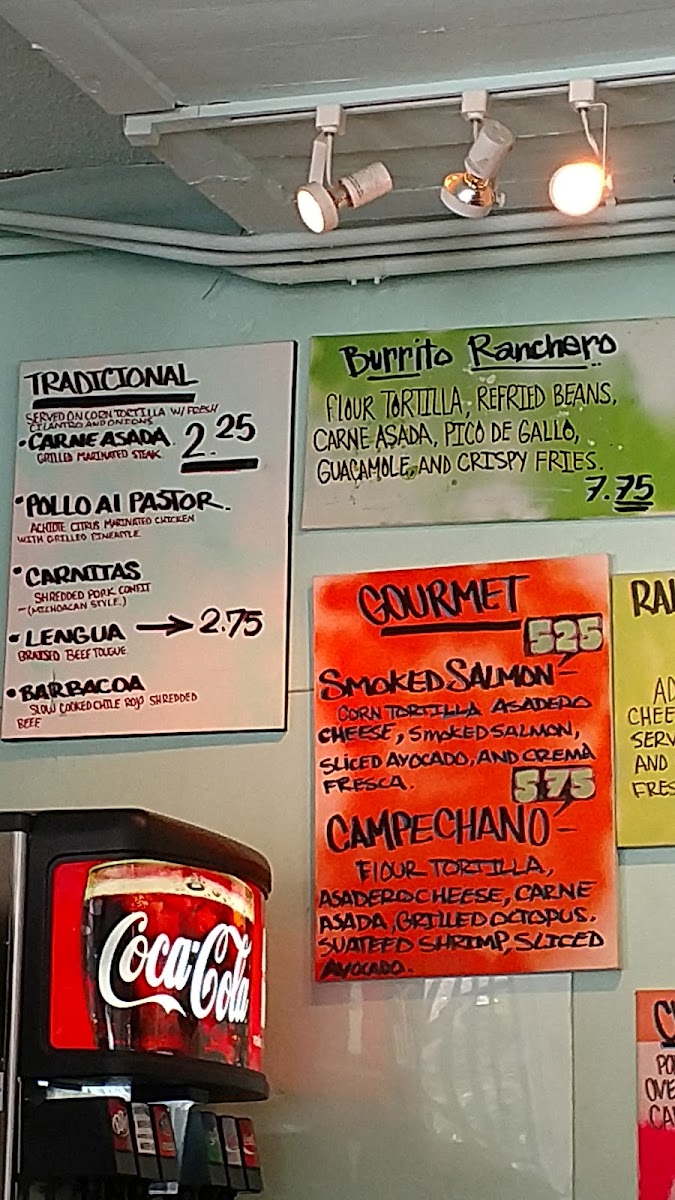 TRADICIONAL
SERVED ON CORN TORTILLA W/ FRESH
CILANTRO AND ONIONS
• CARNE ASADA. 2.25
GRILLED MARINATED STEAK
• POLLO Al PASTOR.
ACHIOTE CITRUS MARINATED CHICKEN
WITH GRILLED PINEAPPLE
• CARNITAS
SHREDDED PORK CONFIT
-(MICHOACAN STYLE.)
• LENGUA → 2.75
BRAISED BEEF TOUGUE
• BARBACOA
SLOW COOKED CHILE ROJO SHREDDED
BEEF
Burrito Ranchero
FlOUR TORTILLA, REFRIED BEANS,
CARNE ASADA, PICO DE GALLO,
GUACAMOLE, AND CRISPY FRIES.
7.75
GOURMET
525
SMOKED SALMON-
CORN TORTILLA ASADERO
CHEESE, SMOKED SALMON,
SLICED AVOCADO, AND CREMA
FRESCA.
575
CAMPECHANO-
FlOUR TORTILLA,
ASADERO CHEESE, CARNE
ASADA, GRILLED OCTOPUS.
SUATEED SHRIMP, SLICED
AVOCADO.
CHEE
SERV
AND
FRES
OVE
Coca-Cola